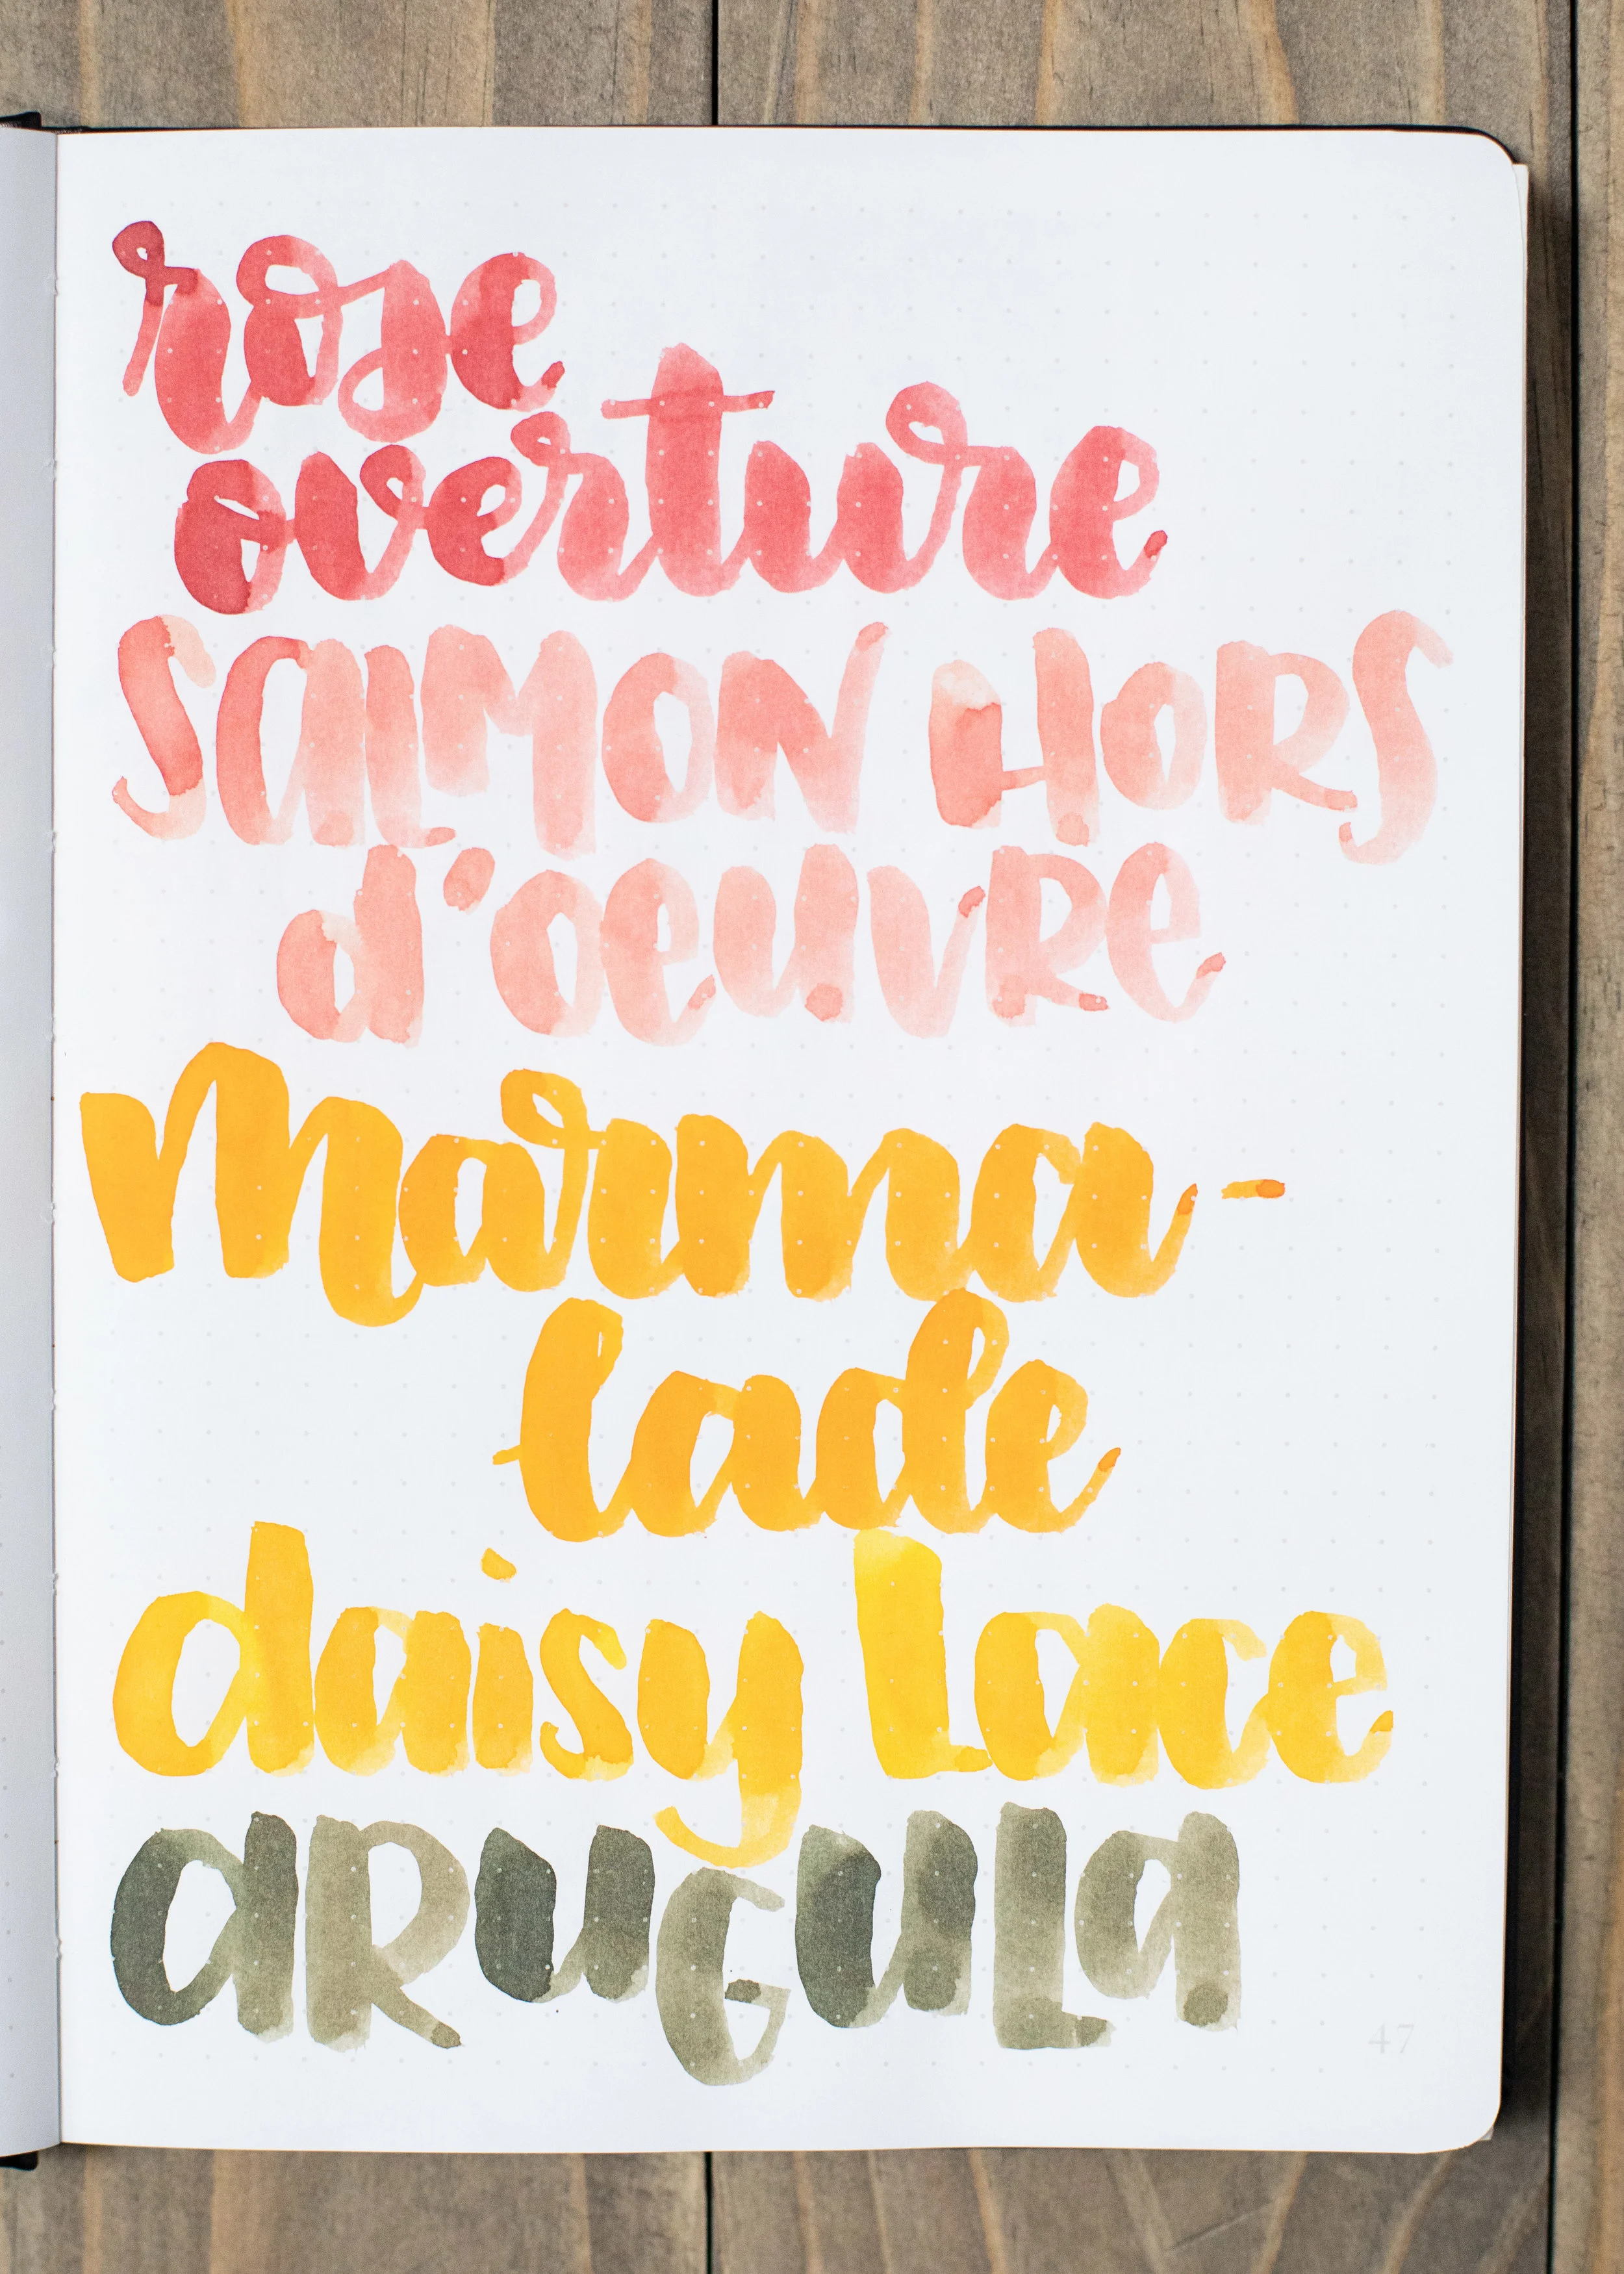 rose
overture
SalMON HORS
d'oeuvRe
Marma-
lade
daisy Lace
aRuGuLa
47